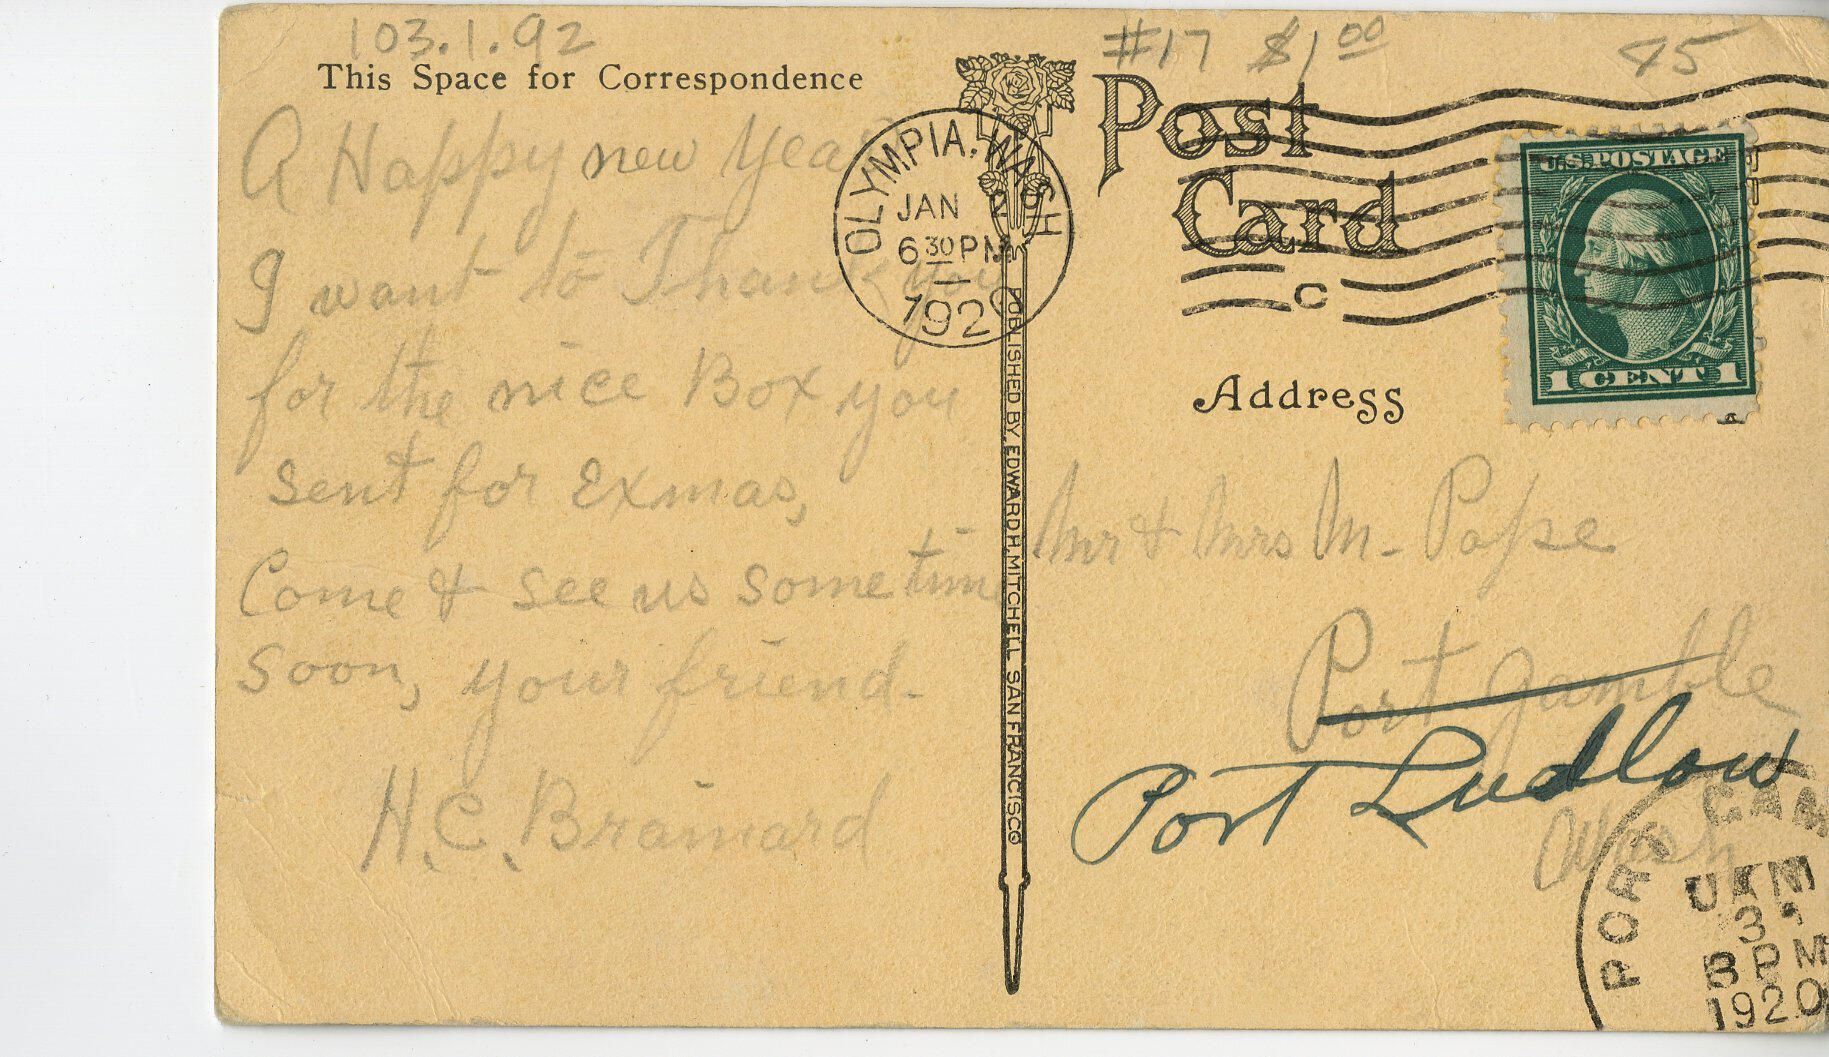 103.1.92
#17 $1 00
45
This Space for Correspondence
Post
Card
A Happy new Year
I want to Thank you
for the nice Box you
sent for Exmas,
Come & see us some time
soon, your friend.
H.C. Brainard
OLYMPIA, WASH
JAN 2
6 30 PM
1920
C
U.S. POSTAGE
1 CENT 1
PUBLISHED BY EDWARD H. MITCHELL SAN FRANCISCO
Address
Mr & Mrs M. Pope
Port Gamble
Port Ludlow
Wash
PORT GAM
3
PM
1920